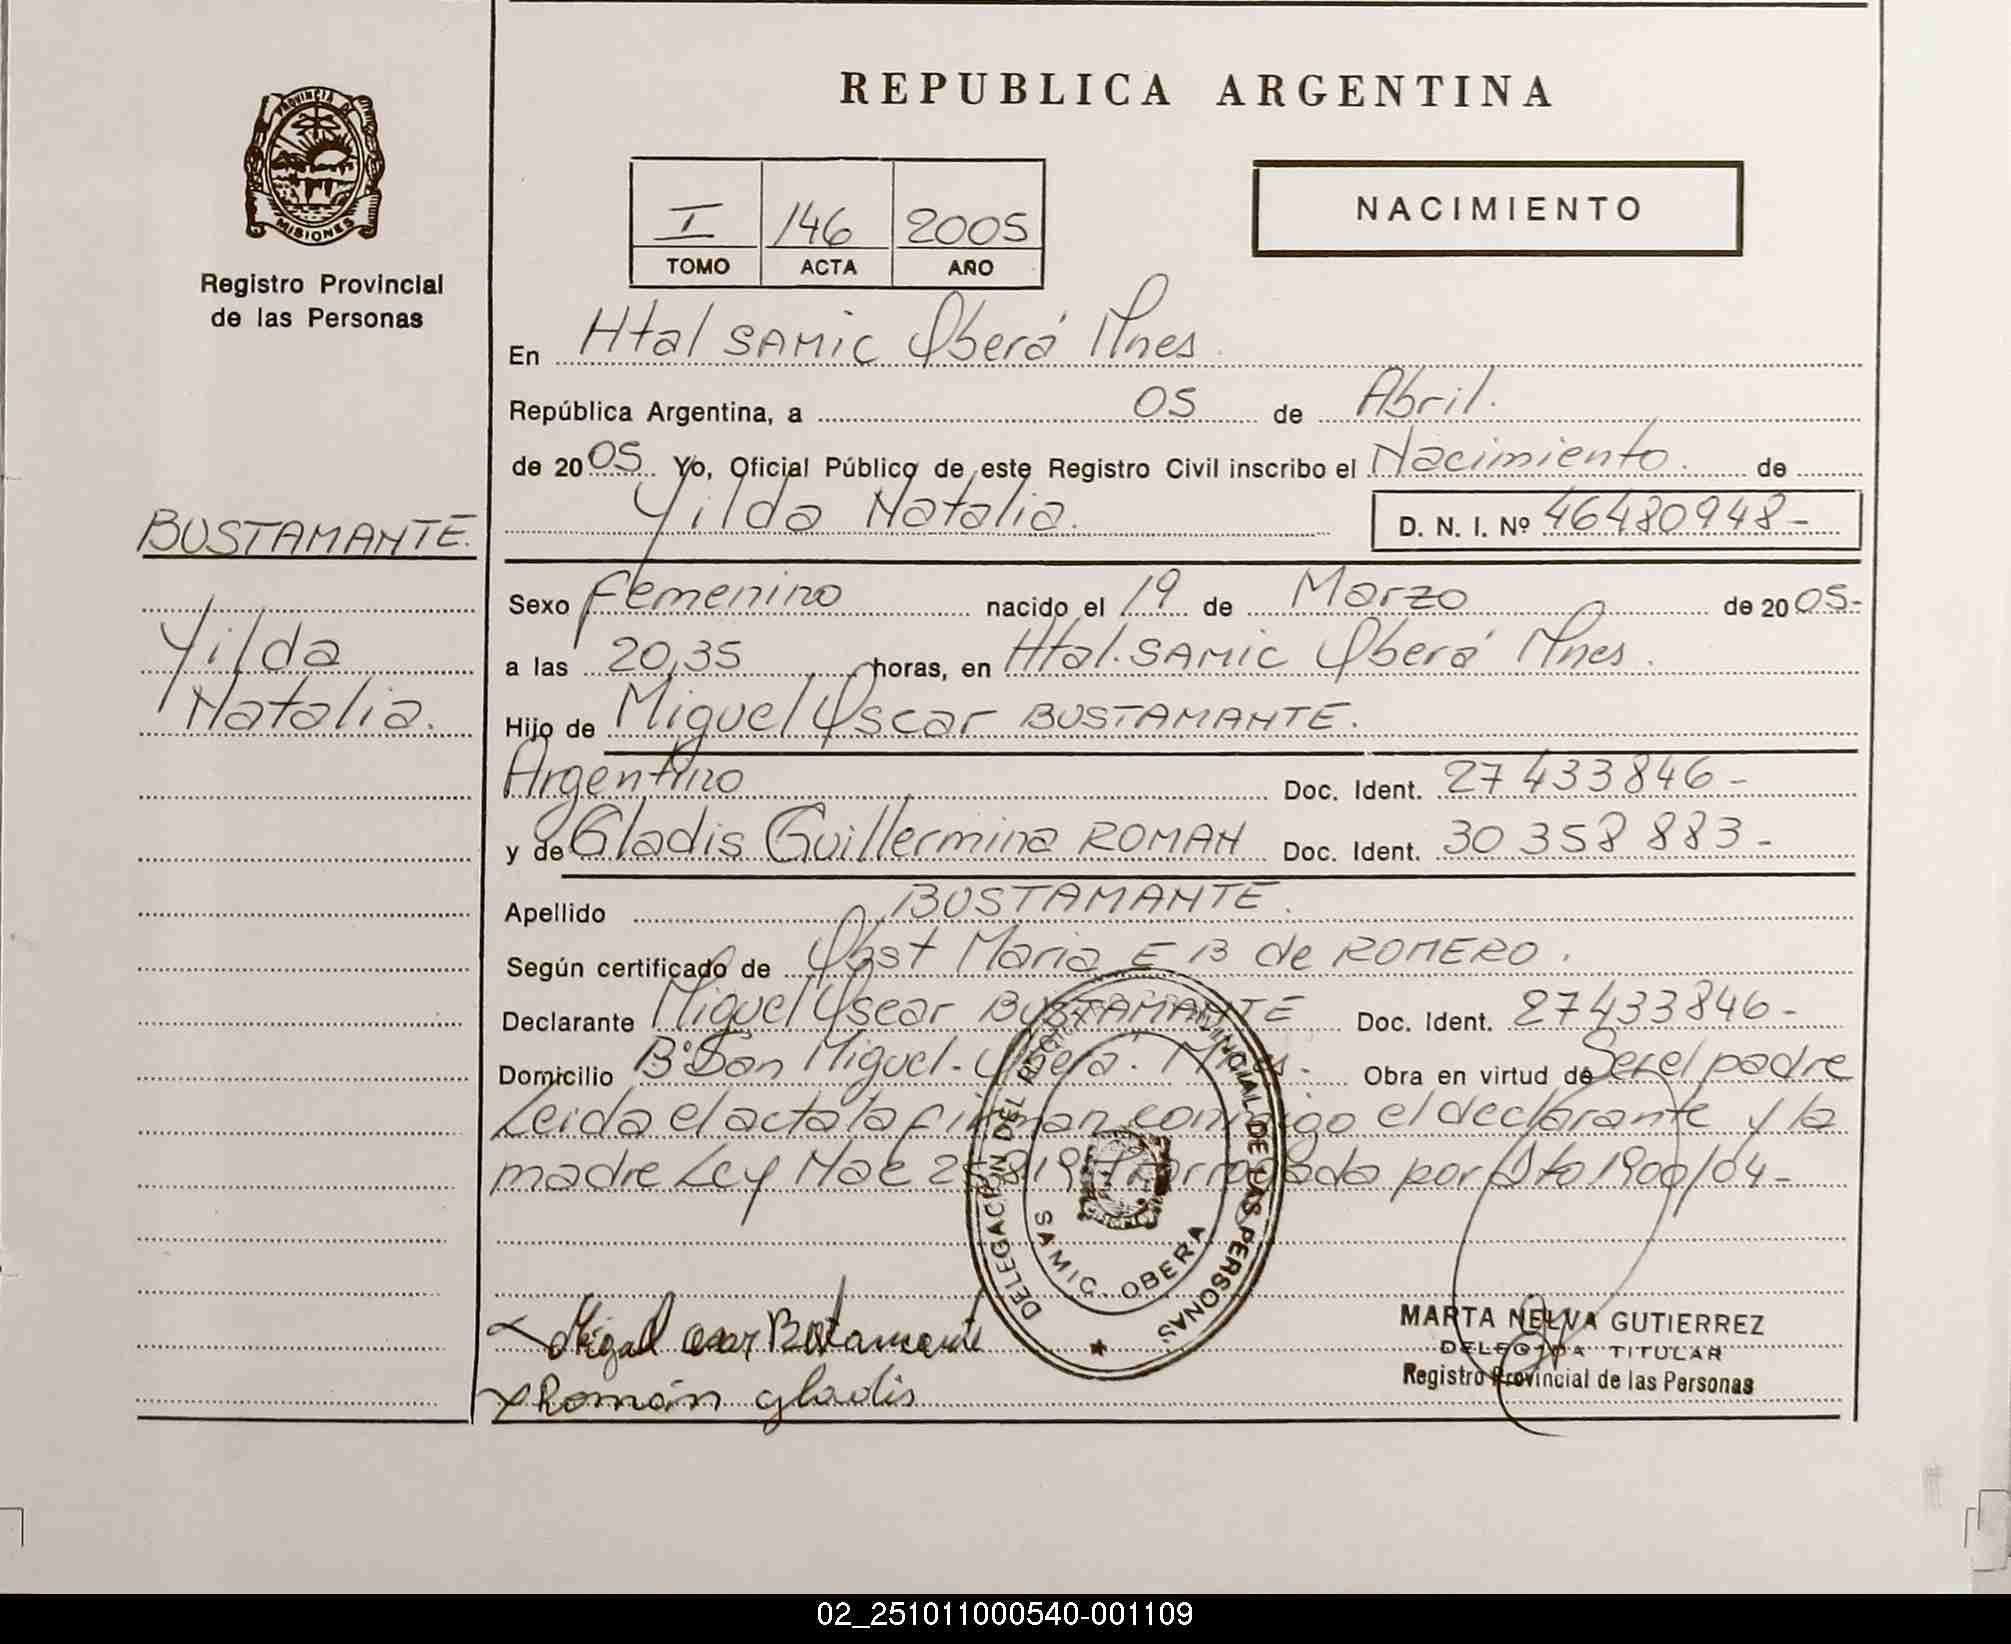 REPUBLICA ARGENTINA
PROVINCIA DE
MISIONES
Registro Provincial
de las Personas
I 146 2005
TOMO ACTA AÑO
NACIMIENTO
En Htal SAMIC Oberá Mnes
República Argentina, a 05 de Abril.
de 2005 Yo, Oficial Público de este Registro Civil inscribo el Nacimiento de
Yilda Natalia. D. N. I. Nº 46480948-
BUSTAMANTE.
Yilda
Natalia.
Sexo Femenino nacido el 19 de Marzo de 2005-
a las 20,35 horas, en Htal. SAMIC Oberá Mnes.
Hijo de Miguel Oscar BUSTAMANTE.
Argentino Doc. Ident. 27 433 846-
y de Gladis Guillermina ROMAN Doc. Ident. 30 358 883-
Apellido BUSTAMANTE.
Según certificado de Obst Maria E B de ROMERO.
Declarante Miguel Oscar BUSTAMANTE Doc. Ident. 27433846-
Domicilio Bº San Miguel-Oberá. Mnes. Obra en virtud de Ser el padre
Leida el acta la firman conmigo el declarante y la
madre Ley Nac 25819 Prorrogada por Dto 1900/04-
DELEGACION DEL REGISTRO PROVINCIAL DE LAS PERSONAS
SAMIC. OBERA
Miguel oscar Bustamante
Román gladis
MARTA NELVA GUTIERREZ
DELEGADA TITULAR
Registro Provincial de las Personas
02_251011000540-001109